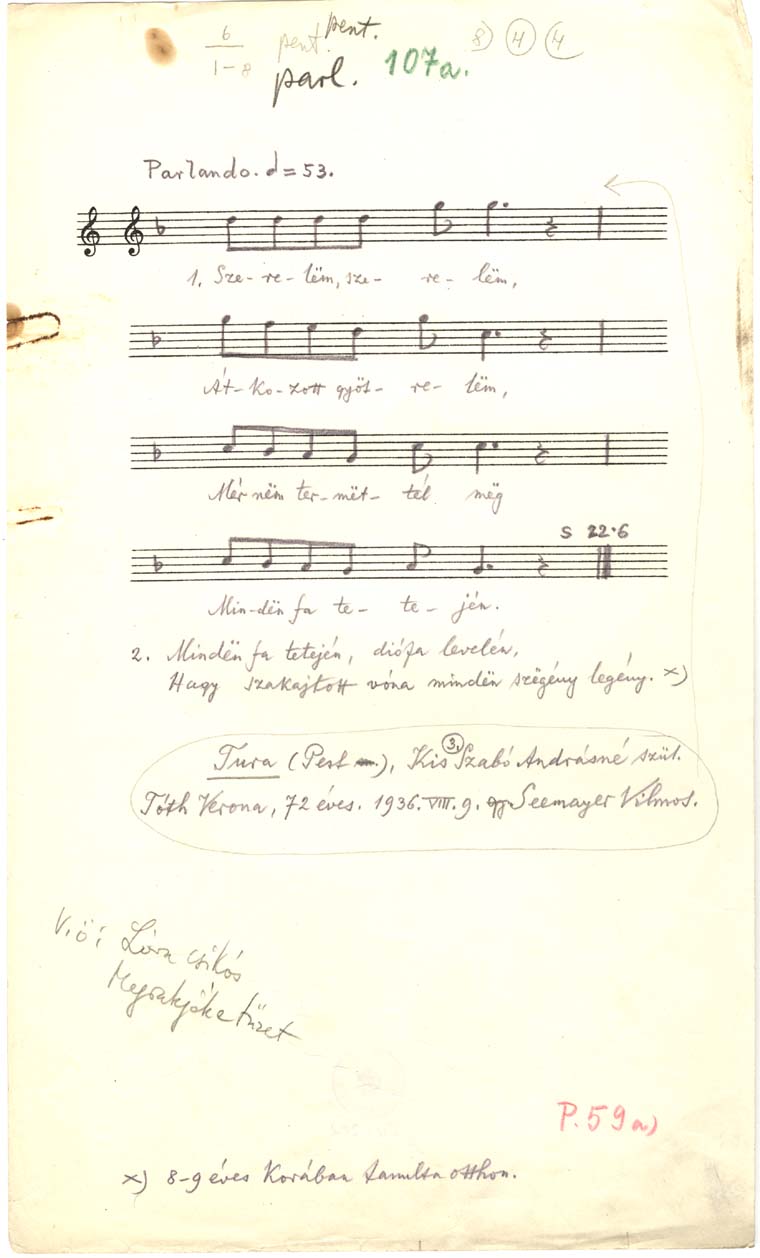 6
1-8
pent.
pent.
8) 4 4
parl. 107a.
Parlando. = 53.
1. Sze- re- lëm, sze- re- lëm,
Át- ko- zott gyöt- re- lëm,
Mér nëm ter- mët- tél mëg
Min- dën fa te- te- jén.
S 22.6
2. Mindën fa tetején, diófa levelén,
Hagy szakajtott vóna mindën szëgény legény. x)
Tura (Pest m.), Kis 3. Szabó Andrásné szül.
Tóth Verona, 72 éves. 1936. VIII. 9. Seemayer Vilmos.
V.ö: Lóra csikós
Megrakják e tüzet
P. 59a)
x) 8-9 éves korában tanulta otthon.